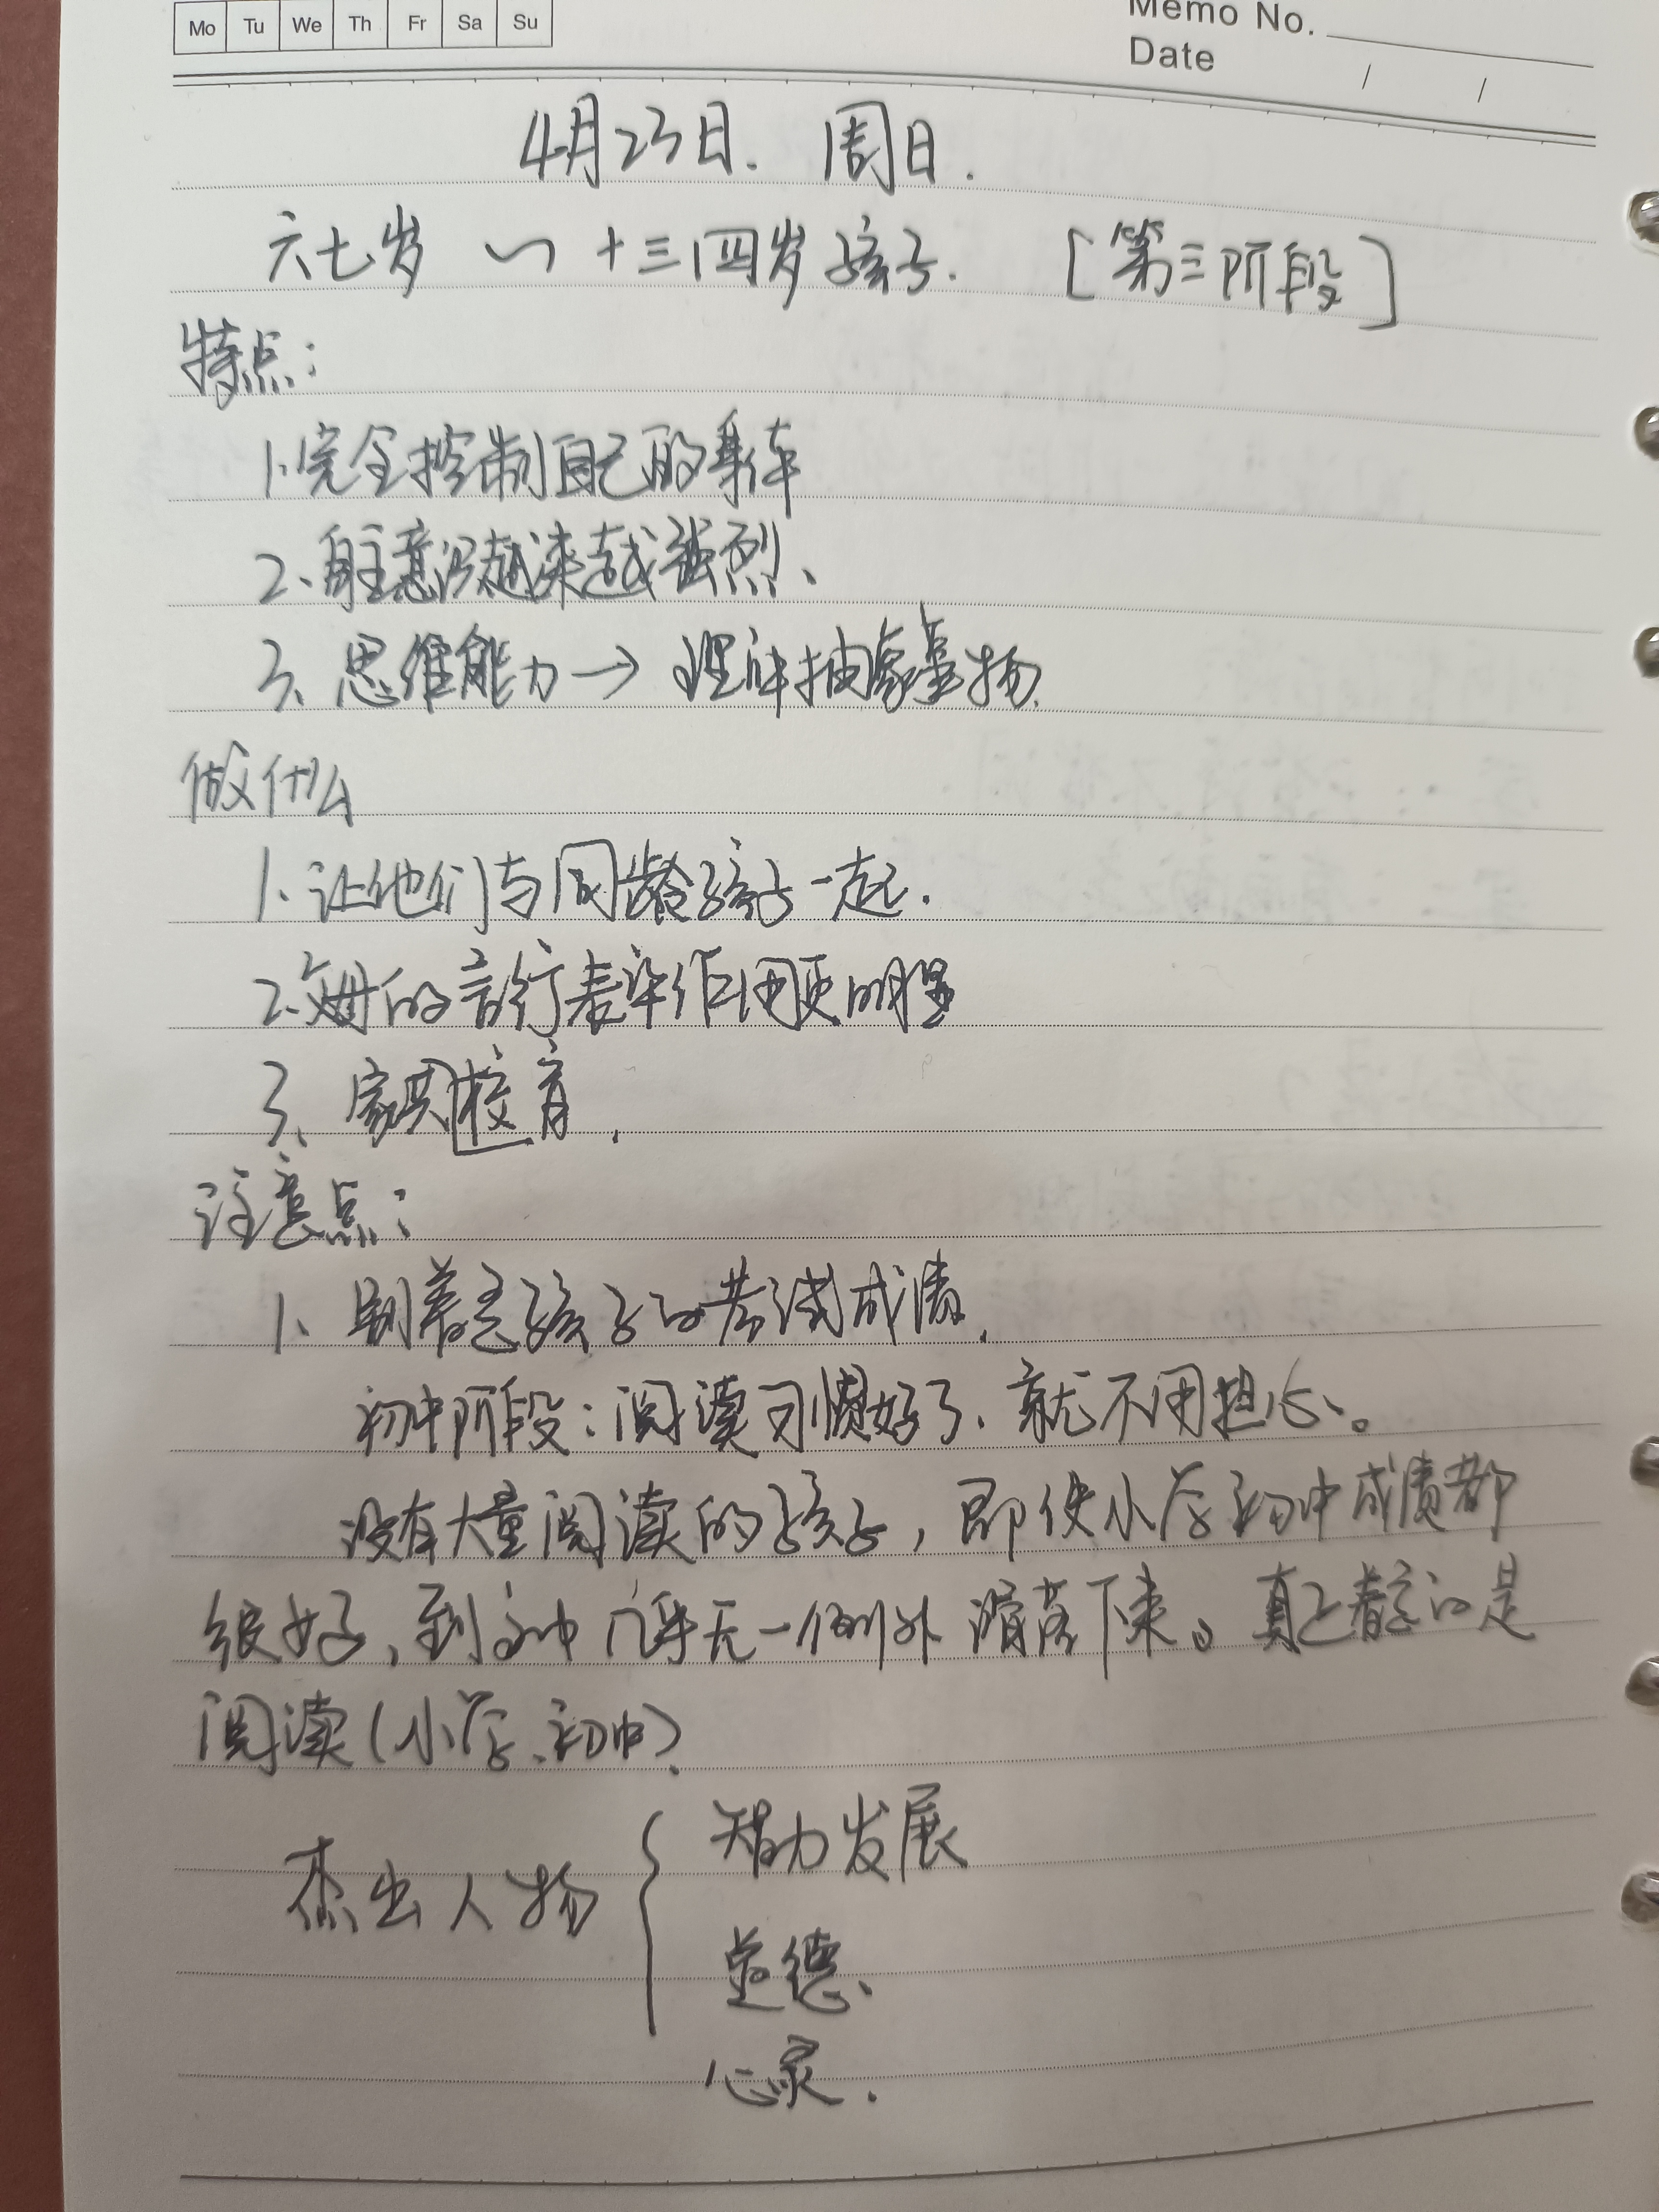 Mo Tu We Th Fr Sa Su
Memo No.
Date / /
4月23日. 周日.
六七岁 ~ 十三四岁孩子. [第三阶段]
特点:
1.完全控制自己的身体
2、自主意识越来越强烈、
3、思维能力→理解抽象事物.
做什么
1、让他们与同龄孩子一起.
2、父母的言行表率作用更明显
3、家其校育.
注意点:
1、别着急孩子的考试成绩.
初中阶段:阅读习惯好了、就不用担心。
没有大量阅读的孩子,即使小学初中成绩都
很好,到高中几乎无一例外滑落下来。真正着急的是
阅读(小学、初中).
杰出人物 { 智力发展
道德、
心灵.